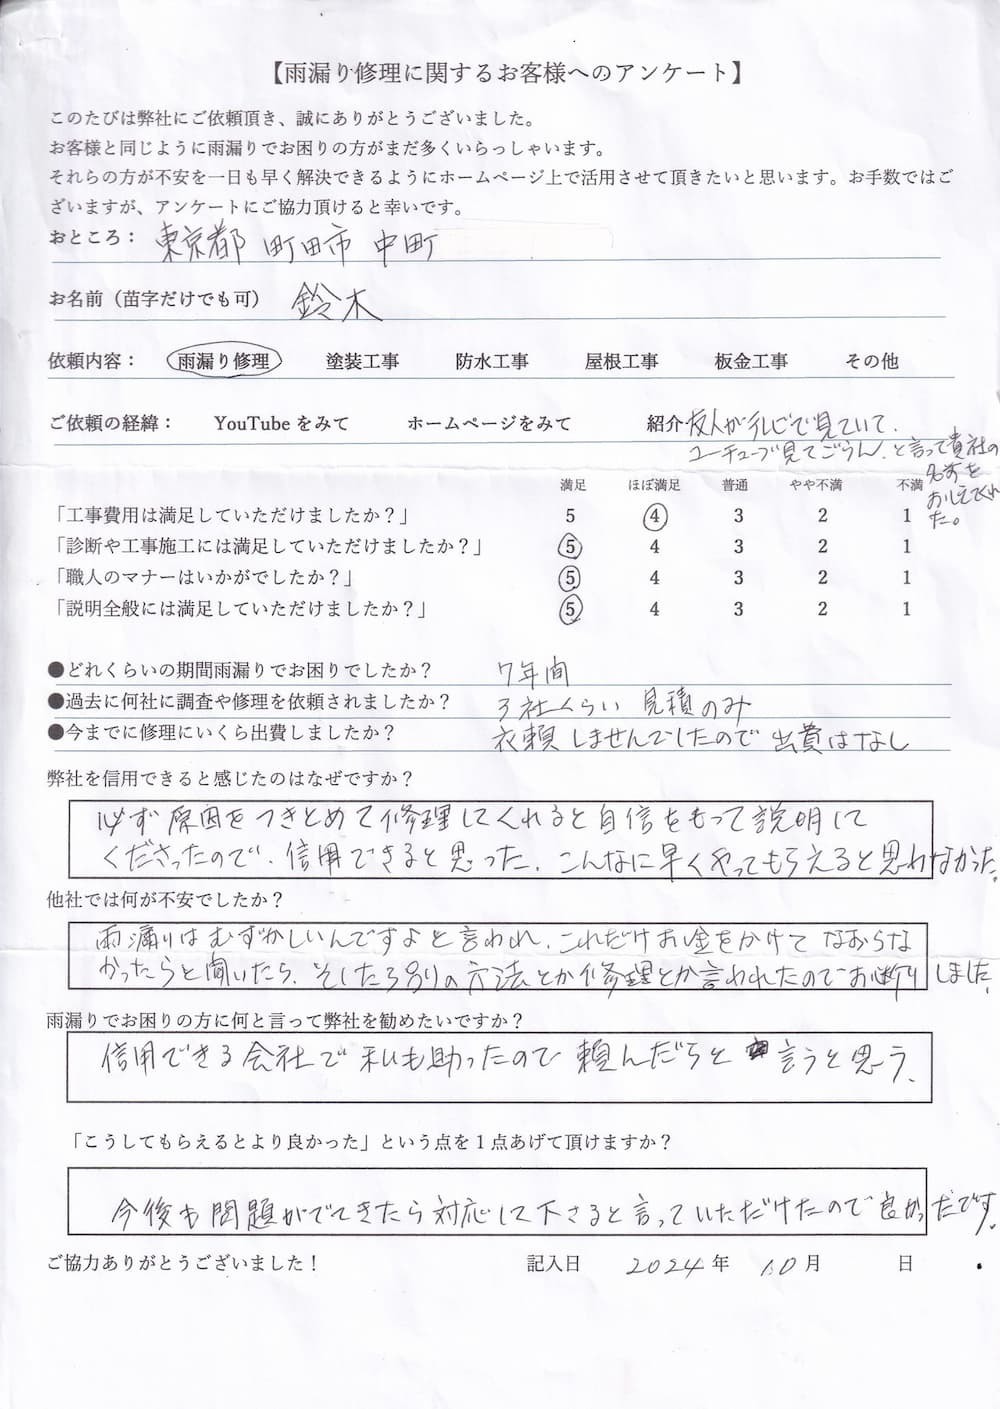 【雨漏り修理に関するお客様へのアンケート】
このたびは弊社にご依頼頂き、誠にありがとうございました。
お客様と同じように雨漏りでお困りの方がまだ多くいらっしゃいます。
それらの方が不安を一日も早く解決できるようにホームページ上で活用させて頂きたいと思います。お手数ではご
ざいますが、アンケートにご協力頂けると幸いです。
おところ： 東京都 町田市 中町
お名前（苗字だけでも可） 鈴木
依頼内容： 雨漏り修理 塗装工事 防水工事 屋根工事 板金工事 その他
ご依頼の経緯： YouTubeをみて ホームページをみて 紹介 友人がテレビで見ていて、
ユーチューブ見てごらん、と言って貴社の
名前を
おしえてくれ
た。
満足 ほぼ満足 普通 やや不満 不満
「工事費用は満足していただけましたか？」 5 4 3 2 1
「診断や工事施工には満足していただけましたか？」 5 4 3 2 1
「職人のマナーはいかがでしたか？」 5 4 3 2 1
「説明全般には満足していただけましたか？」 5 4 3 2 1
●どれくらいの期間雨漏りでお困りでしたか？ 7年間
●過去に何社に調査や修理を依頼されましたか？ 3社くらい 見積のみ
●今までに修理にいくら出費しましたか？ 衣頼しませんでしたので 出費はなし
弊社を信用できると感じたのはなぜですか？
必ず原因をつきとめて修理してくれると自信をもって説明して
くださったので、信用できると思った、こんなに早くやってもらえると思わなかった。
他社では何が不安でしたか？
雨漏りはむずかしいんですよと言われ、これだけお金をかけてなおらな
かったらと聞いたら、そしたら別の方法とか修理とか言われたのでお断りしました。
雨漏りでお困りの方に何と言って弊社を勧めたいですか？
信用できる会社で私も助ったので頼んだらと 言うと思う、
「こうしてもらえるとより良かった」という点を1点あげて頂けますか？
今後も問題がでてきたら対応して下さると言っていただけたので良かっだです。
ご協力ありがとうございました！ 記入日 2024年 10月 日